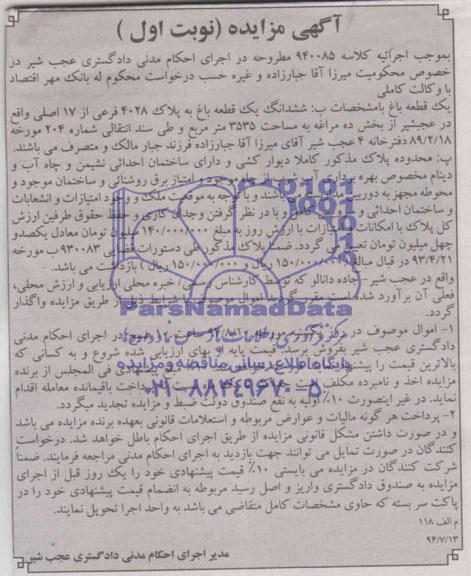 آگهی مزایده (نوبت اول)
بموجب اجرائیه کلاسه ۹۴۰۰۸۵ مطروحه در اجرای احکام مدنی دادگستری عجب شیر در
خصوص محکومیت میرزا آقا جبارزاده و غیره حسب درخواست محکوم له بانک مهر اقتصاد
با وکالت کاملی
یک قطعه باغ بامشخصات ب: ششدانگ یک قطعه باغ به پلاک ۴۰۲۸ فرعی از ۱۷ اصلی واقع
در عجبشیر از بخش ده مراغه به مساحت ۳۵۳۵ متر مربع و طی سند انتقالی شماره ۲۰۴ مورخه
۸۹/۲/۱۸ دفترخانه ۴ عجب شیر آقای میرزا آقا جبارزاده فرزند جبار مالک و متصرف می باشند.
پ: محدوده پلاک مذکور کاملا دیوار کشی و دارای ساختمان احداثی نشیمن و چاه آب و
دینام مخصوص بهره برداری آب شرب از چاه موجود و امتیاز برق روشنائی و ساختمان موجود و
محوطه مجهز به دوربین باشند و با توجه به موقعیت ملک و وجود امتیازات و انشعابات
و ساختمان احداثی و با در نظر گرفتن وجدان کاری و حفظ حقوق طرفین ارزش
کل پلاک با امکانات و امتیازات با ارزش روز به مبلغ ۱۴۰/۰۰۰/۰۰۰ تومان معادل یکصدو
چهل میلیون تومان تعیین می گردد. ضمنا پلاک مذکور طی دستورات قضایی ۹۳۰۰۸۳ ب مورخه
۹۳/۴/۲۱ در قبال مبالغ ۱۵۰/۰۰۰/۰۰۰ ریال و ۱۵۰/۰۰۰/۰۰۰ ریال بازداشت می باشد.
واقع در عجب شیر - جاده دانالو که توسط کارشناس رسمی/خبره محلی ارزیابی و ارزش محلی،
فعلی آن برآورد شده است مقرر گردید اموال موصوف با شرایط ذیل از طریق مزایده واگذار
گردد.
ParsNamadData
۱- اموال موصوف در روز مورخه ساعت ۱۰ در اجرای احکام مدنی
دادگستری عجب شیر بفروش برسد. قیمت پایه از بهای ارزیابی شده شروع و به کسانی که
پایگاه اطلاع رسانی مناقصه و مزایده
بالاترین قیمت را پیشنهاد فی المجلس از برنده
مزایده اخذ و نامبرده مکلف پرداخت باقیمانده معامله اقدام
۰۲۱-۸۸۳۴۹۶۷۰-۵
نماید. در غیر اینصورت ۱۰٪ اولیه به نفع صندوق دولت ضبط و مزایده تجدید میگردد.
۲- پرداخت هر گونه مالیات و عوارض مربوطه و استعلامات قانونی بعهده برنده مزایده می باشد
و در صورت داشتن مشکل قانونی مزایده از طریق اجرای احکام باطل خواهد شد. درخواست
کنندگان در صورت تمایل می توانند جهت بازدید به اجرای احکام مدنی مراجعه فرمایند. ضمنا
شرکت کنندگان در مزایده می بایستی ۱۰٪ قیمت پیشنهادی خود را یک روز قبل از اجرای
مزایده به صندوق دادگستری واریز و اصل رسید مربوطه به انضمام قیمت پیشنهادی خود را در
پاکت سر بسته که حاوی مشخصات کامل متقاضی می باشد به واحد اجرا تحویل نمایند.
م الف ۱۱۸
۹۴/۷/۱۳
مدیر اجرای احکام مدنی دادگستری عجب شیر